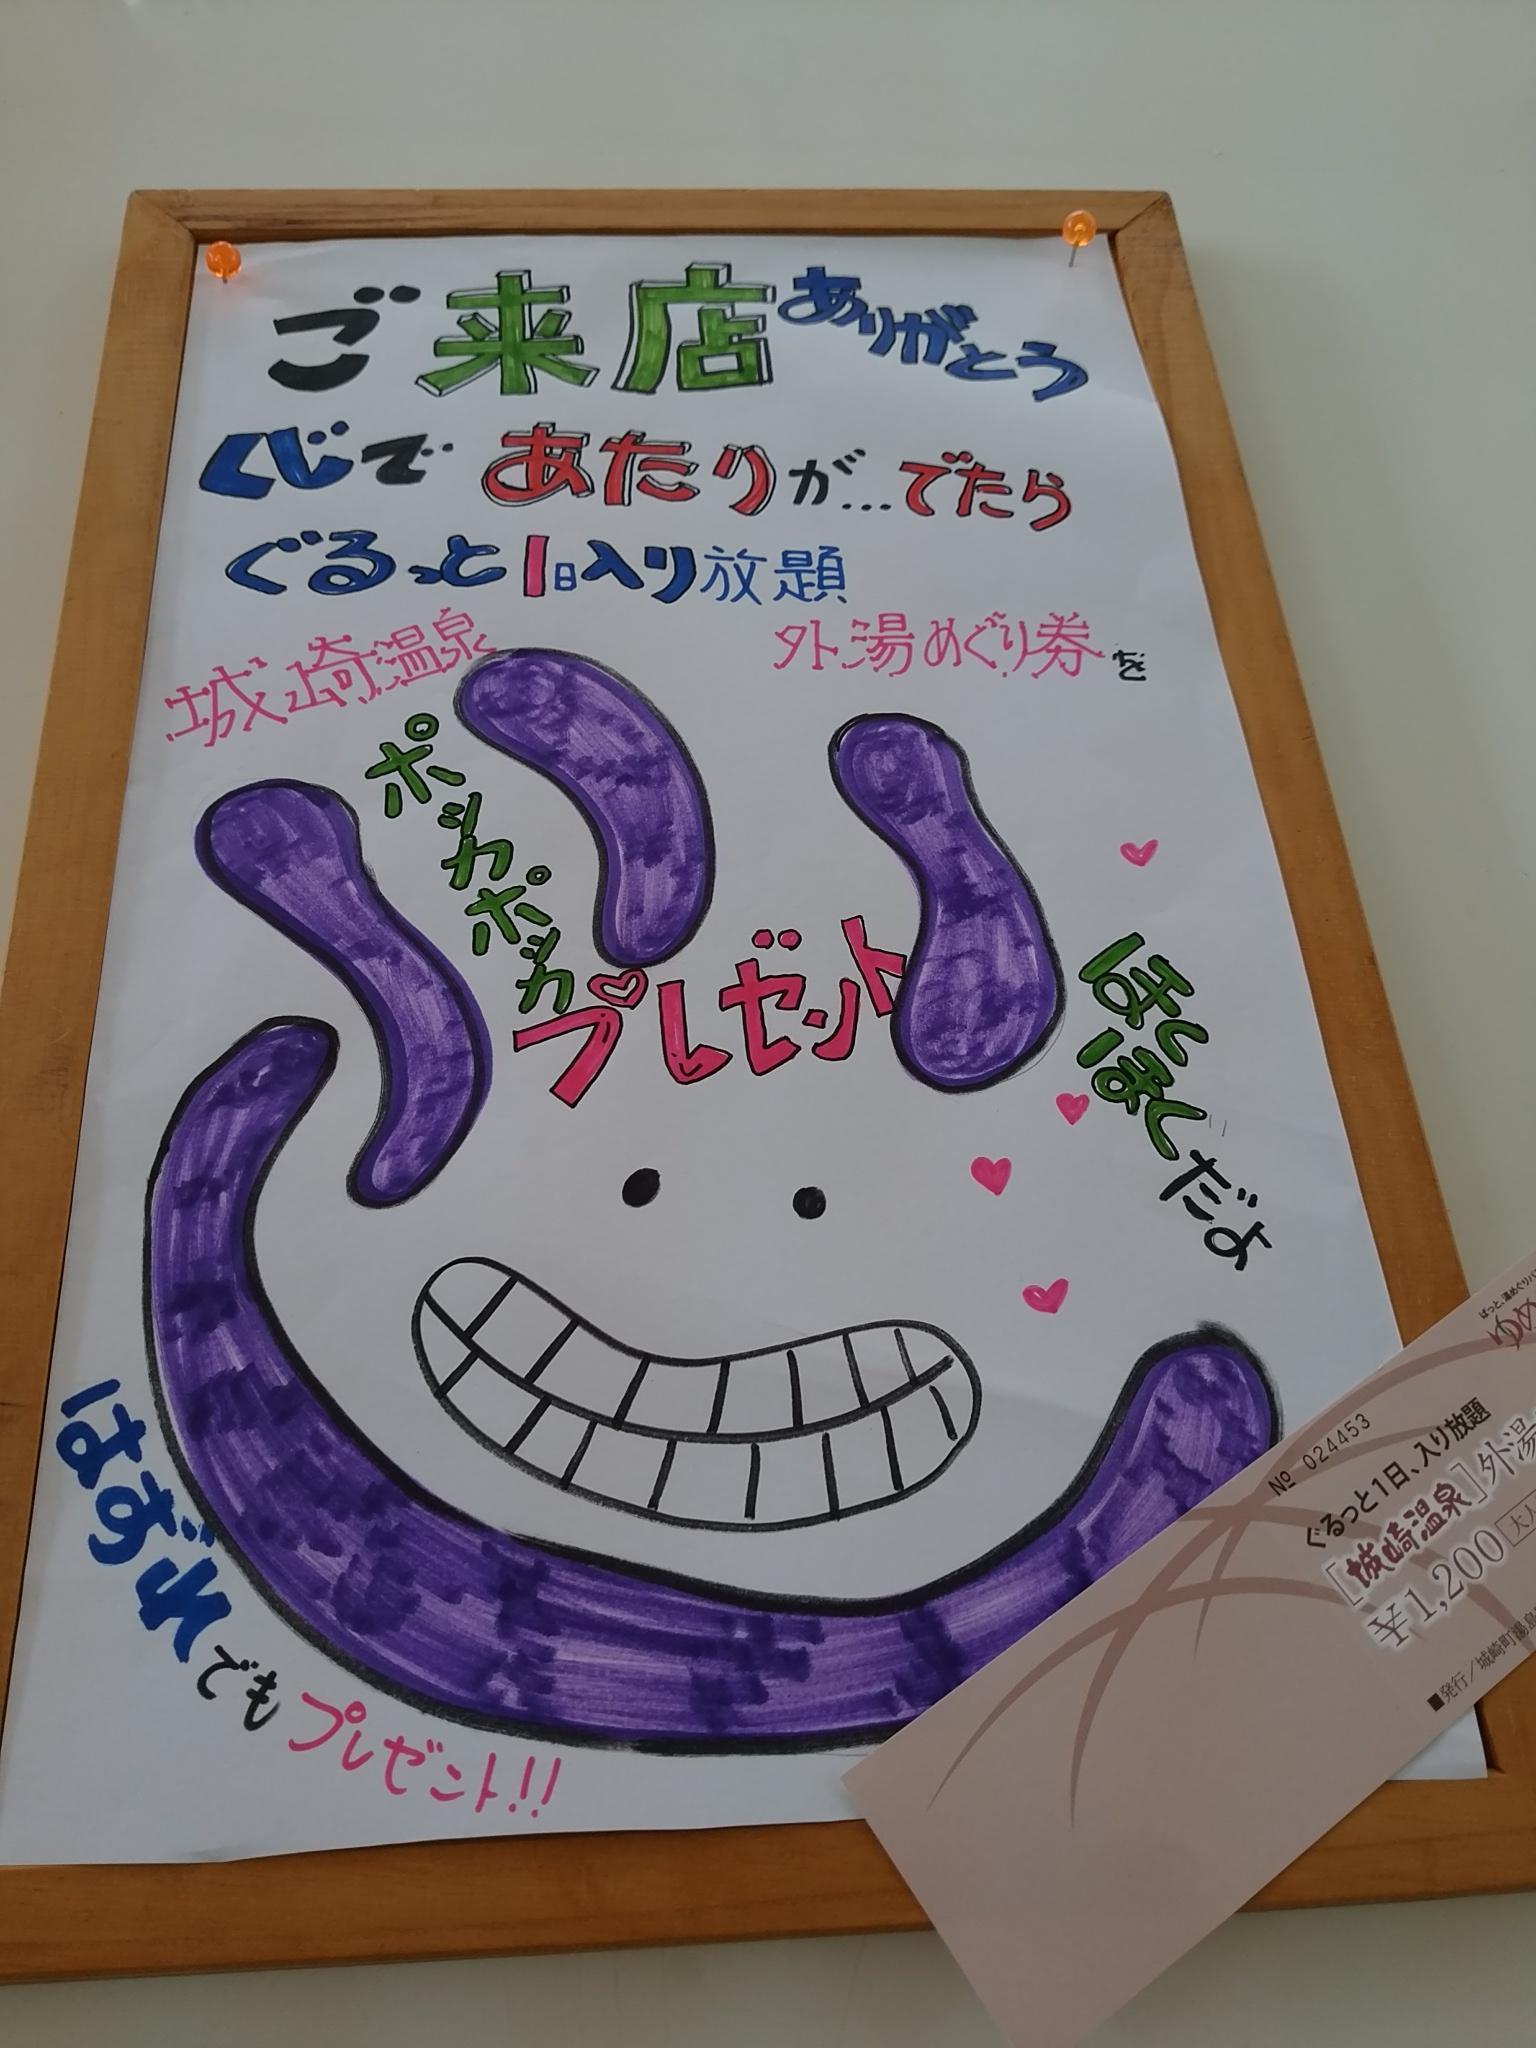 ご来店ありがとう
くじであたりが…でたら
ぐるっと1日入り放題
城崎温泉 外湯めぐり券を
ポッカポッカ
プレゼント
ほくほくだよ
はずれでもプレゼント!!
ゆめ
№ 024453
ぐるっと1日、入り放題
[城崎温泉]外湯
¥1,200 大人
■発行/城崎町湯島